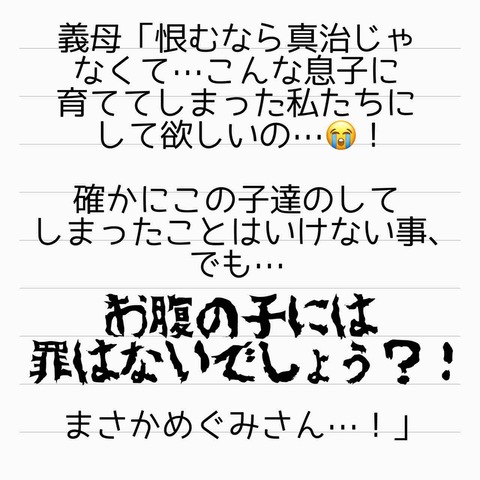 義母「恨むなら真治じゃ
なくて…こんな息子に
育ててしまった私たちに
して欲しいの…😭！
確かにこの子達のして
しまったことはいけない事、
でも…
お腹の子には
罪はないでしょう？！
まさかめぐみさん…！」